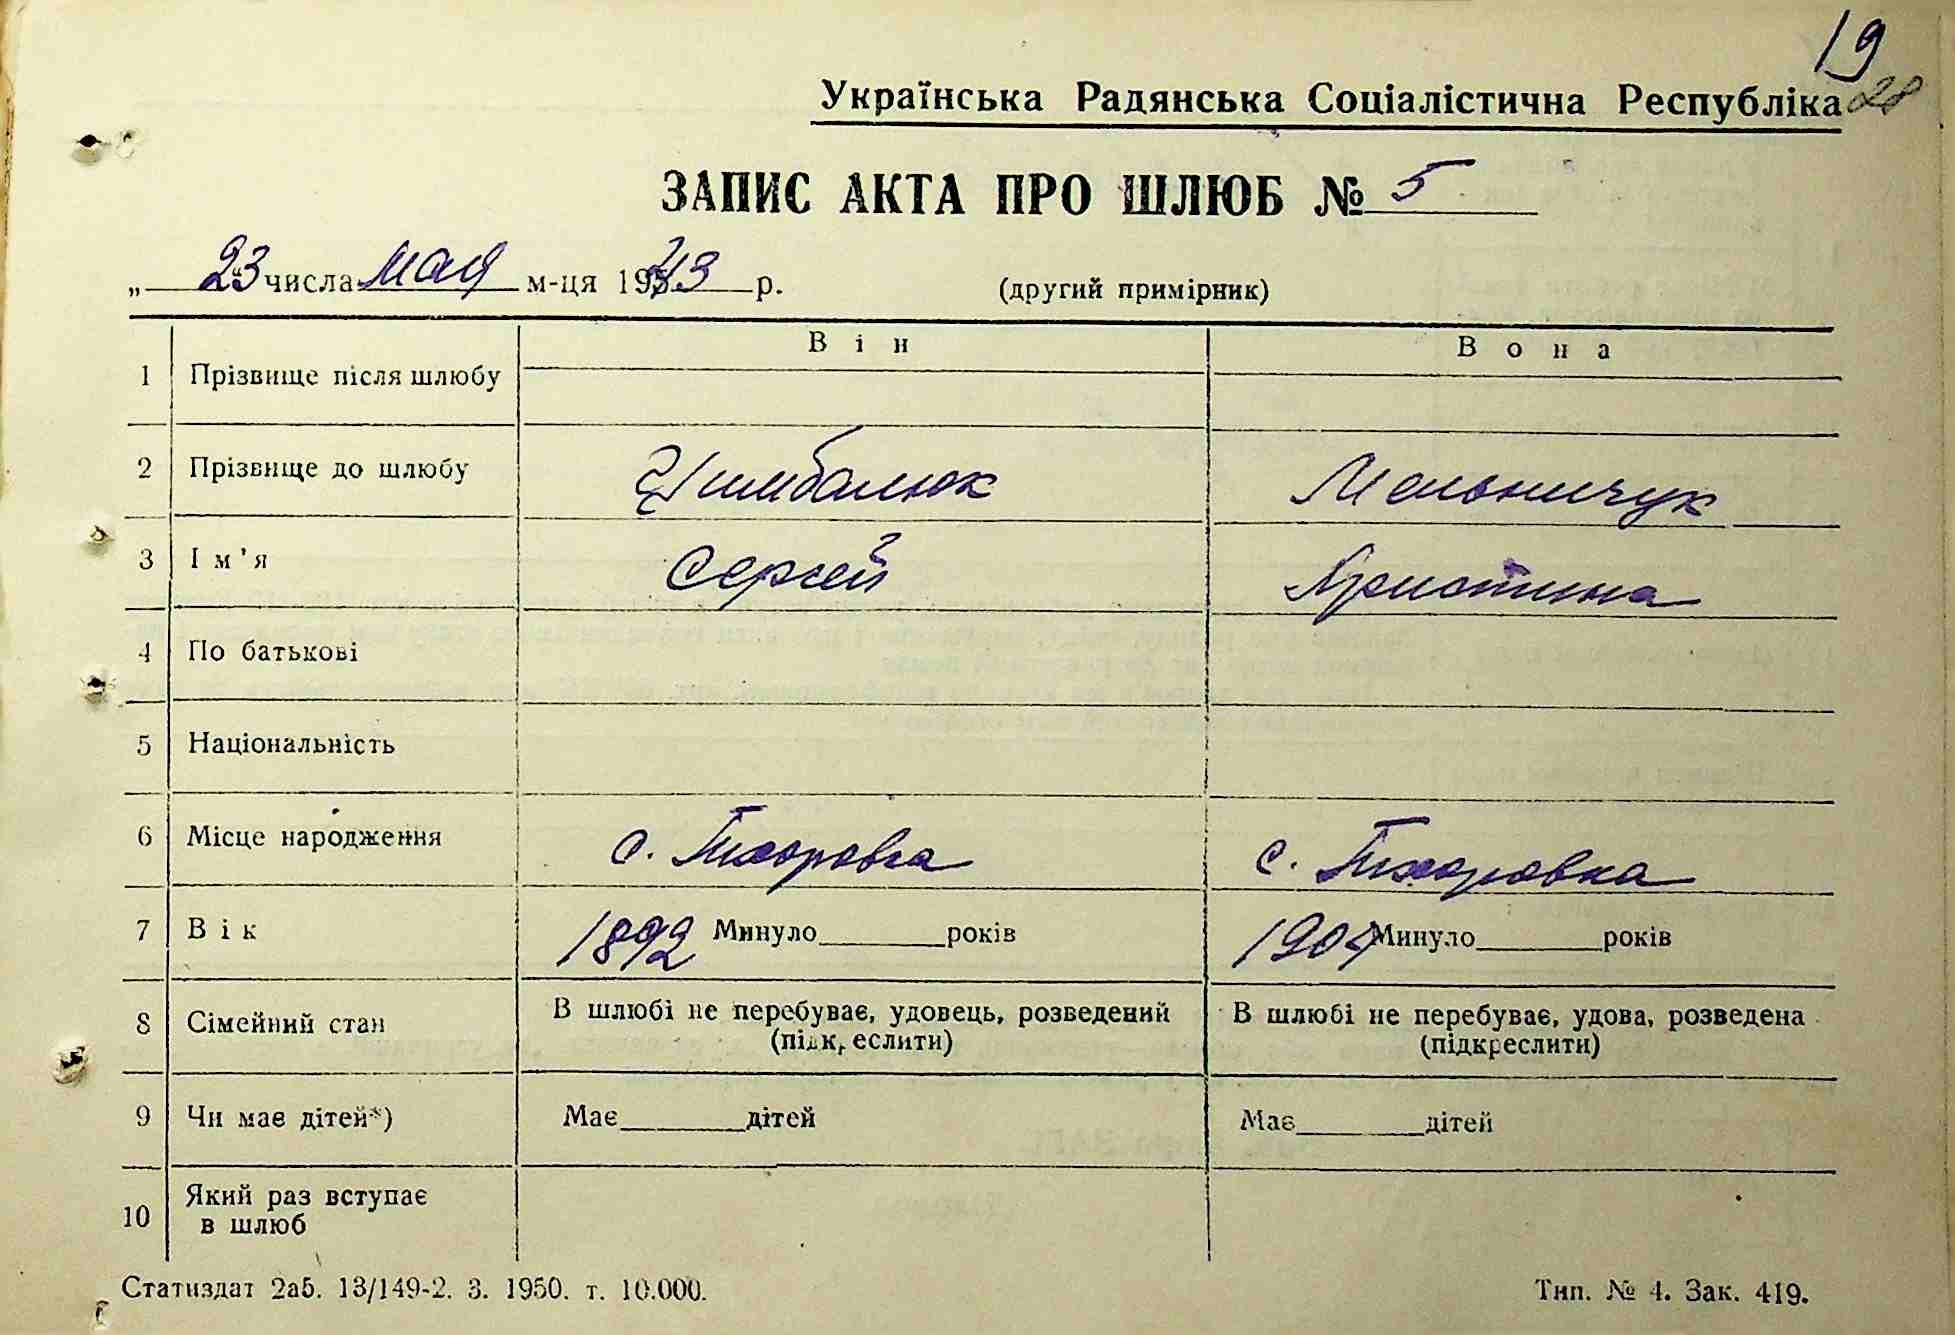 19
28
Українська Радянська Соціалістична Республіка
ЗАПИС АКТА ПРО ШЛЮБ № 5
„ 23 " числа мая м-ця 1943 р. (другий примірник)
Він Вона
1 Прізвище після шлюбу
2 Прізвище до шлюбу Цимбалюк Мельничук
3 Ім'я Сергей Христина
4 По батькові
5 Національність
6 Місце народження с. Тихоровка с. Тихоровка
7 Вік 1892 Минуло ______ років 1904 Минуло ______ років
8 Сімейний стан В шлюбі не перебуває, удовець, розведений В шлюбі не перебуває, удова, розведена
(підкреслити) (підкреслити)
9 Чи має дітей*) Має ______ дітей Має ______ дітей
10 Який раз вступає
в шлюб
Статиздат 2аб. 13/149-2. 3. 1950. т. 10.000. Тип. № 4. Зак. 419.